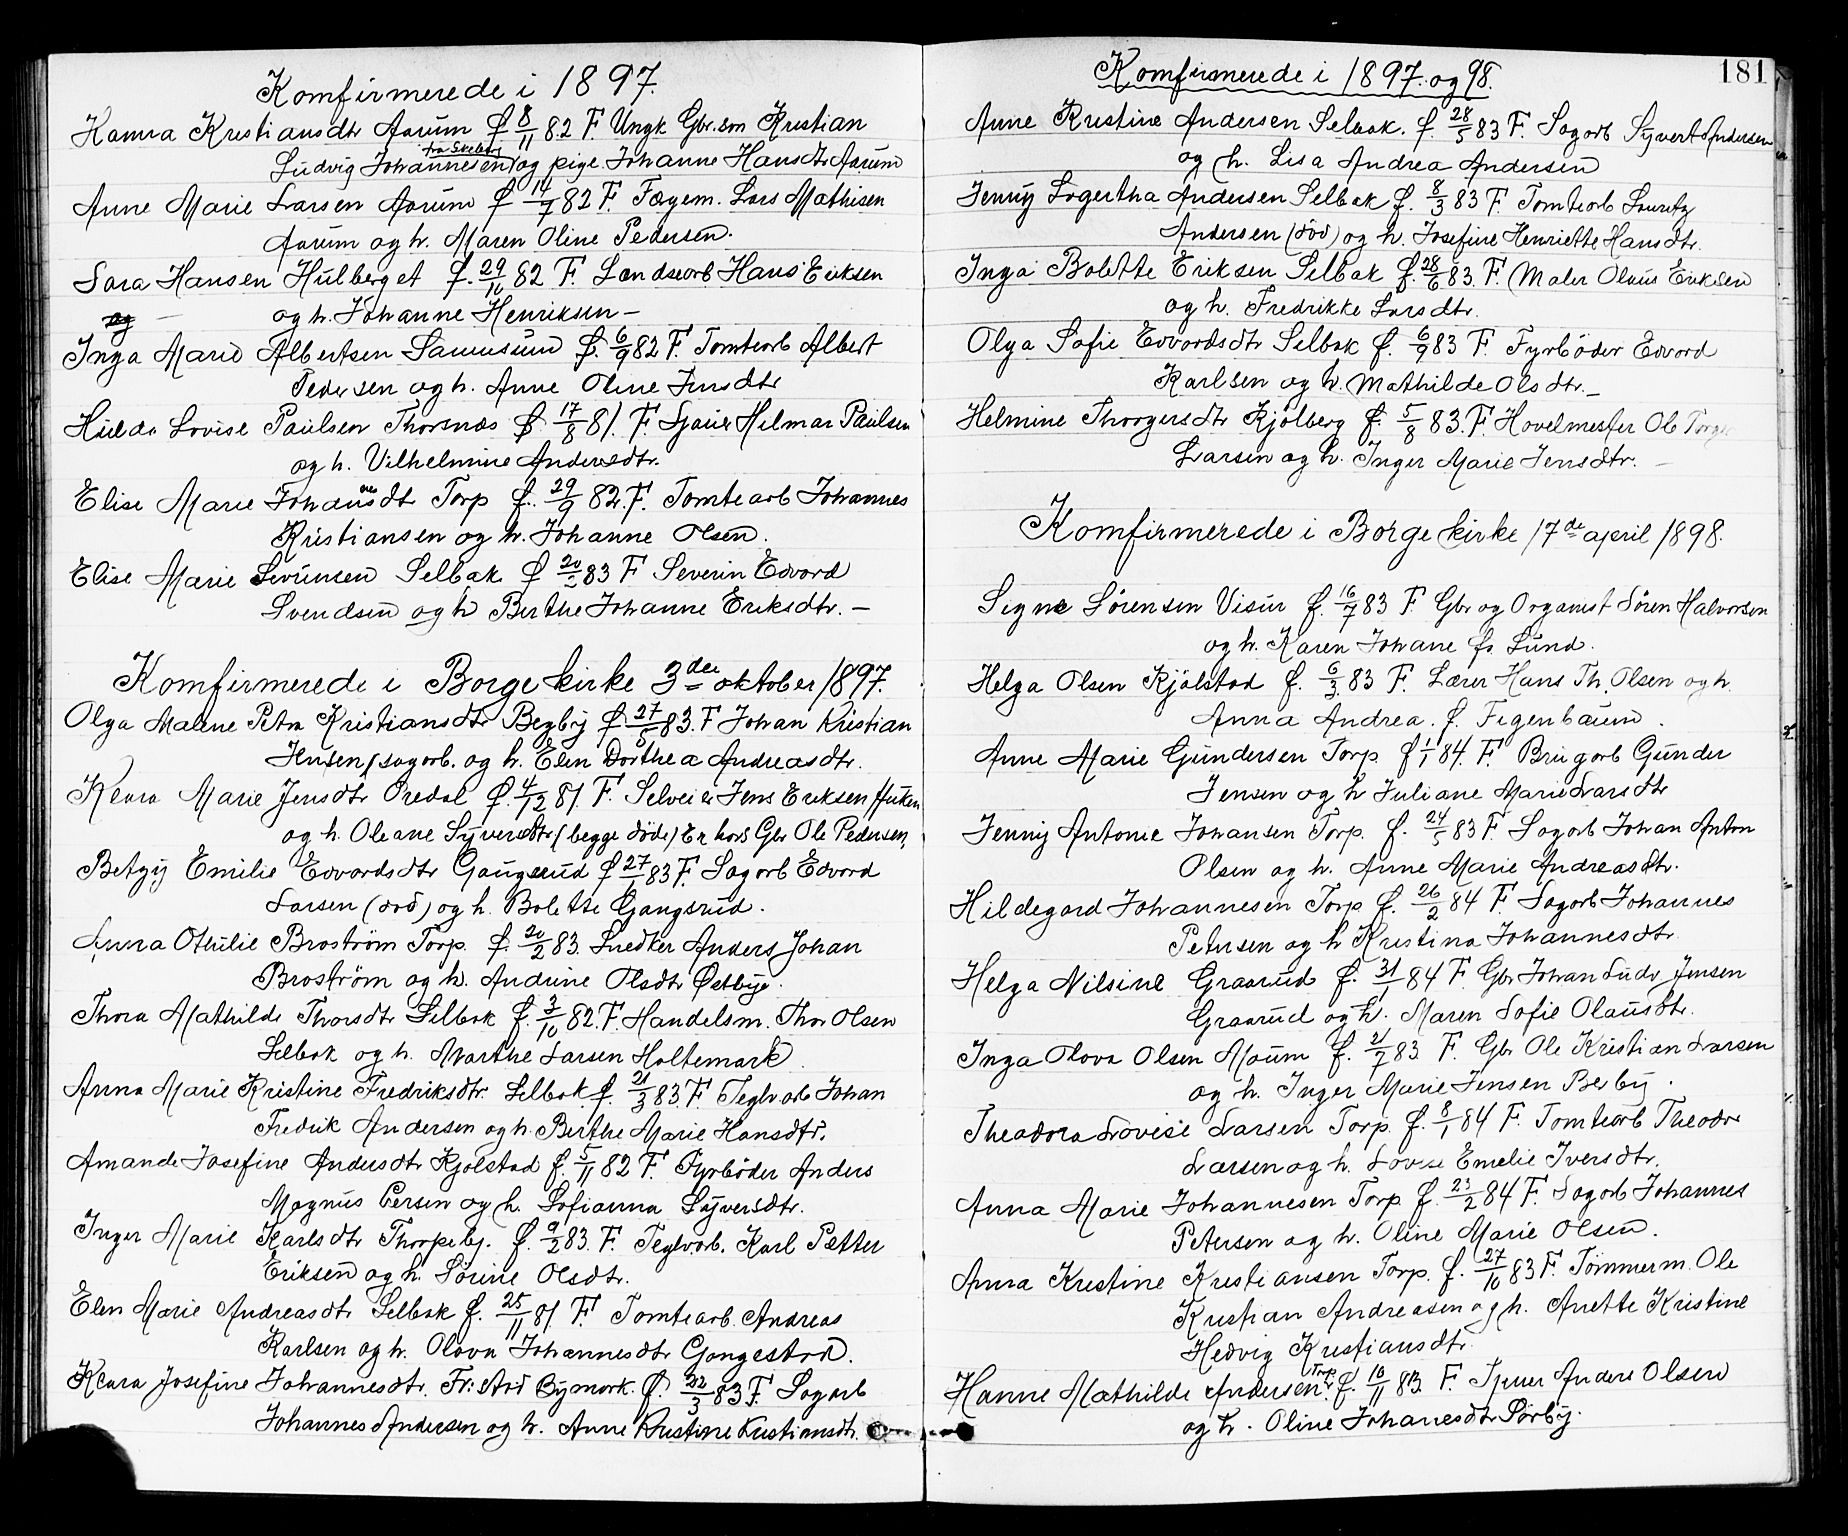 Komfirmerede i 1897.
Hanna Kristiansdtr Aarum f 8/11 82 F Ungk Gbr.søn Kristian
fra Skeberg
Ludvig Johannesen og pige Johanne Hansdtr Aarum
Anne Marie Larsen Aarum f 14/7 82 F. Færgem. Lars Mathisen
Aarum og h. Maren Oline Pedersen.
Sara Hansen Hulberget f. 29/10 82 F. Landseorb Hans Eriksen
og h. Johanne Henriksen –
Inga Marie Albertsen f. 6/9 82 F. Tomtearb Albert
Pedersen og h. Anne Oline Jensdtr
Hilda Lovise Paulsen Thorsnæs f 17/8 81. F. Hilmar Paulsen
og h. Vilhelmine Andersdtr.
Elise Marie Johannesdtr Torp f. 29/9 82. F. Tomtearb Johannes
Kristiansen og h. Johanne Olsen.
Elise Marie Sevrinsen Selbak f 83 F Severin Edvard
Svendsen og h Berthe Johanne Eriksdtr. –
Komfirmerede i Borge kirke 3die oktober 1897.
Olga Malene Petra Kristiansdtr Begby f 27/5 83. F Johan Kristian
Jensen, sagarb. og h. Elen Dorthea Andreasdtr.
Klara Marie Jensdtr Oredal f. 4/12 81. F. Selveier Jens Eriksen
og h. Oleane Syversdtr (begge døde) Er hos Gbr Ole Pedersen,
Betzy Emilie Edvardsdtr Gaugsrud f 27/1 83 F. Sagarb Edvard
Larsen (død) og h. Bolette Gangsrud.
Anna Othilie Broström Torp. f. 20/2 83. Snedker Anders Johan
Broström og h. Andrine Olsdtr Østbye.
Thora Mathilde Thorsdtr Selbak f. 3/10 82. F. Handelsm. Thor Olsen
Selbak og h. Marthe Larsen Holtemark
Anna Marie Kristine Fredriksdtr. Selbak f. 21/3 83. F. Teglvarb Johan
Fredrik Andersen og h. Birthe Marie Hansdtr.
Amande Josefine Andersdtr Kjølstad f. 5/11 82 F. Fyrbøder Anders
Magnus Persen og h. Sofianna Syversdtr.
Inger Marie Karlsdtr Thorpeby. f. 9/2 83. F. Teglvarb. Karl Petter
Eriksen og h. Sørine Olsdtr.
Elen Marie Andreasdtr Selbak f. 25/11 81 F. Tomtearb. Andreas
Karlsen og h. Olava Johannesdtr Gongestad.
Klara Josefine Johannesdtr. Fr:stad Bymark. f. 22/3 83 F. Sagarb
Johannes Andersen og h. Anne Kristine Kristiansdtr.
181
Komfirmerede i 1897. og 98.
Anne Kristine Andersen Selbak. f. 28/5 83 F. Sagarb Syvert Andersen
og h. Lisa Andrea Andersen
Jenny Lagertha Andersen Selbak f. 8/3 83 F. Tomtearb Lauritz
Andersen (død) og h. Josefine Henriette Hansdtr.
Inga Bolette Eriksen Selbak f. 28/6 83. F. Maler Olaus Eriksen
og h. Fredrikke Larsdtr.
Olga Sofie Edvardsdtr Selbak f. 6/9 83 F. Fyrbøder Edvard
Karlsen og h. Mathilde Olsdtr. –
Helmine Thorgersdtr Kjølberg f. 5/8 83. F. Hovelmester Ole Torger
Larsen og h. Inger Marie Jensdtr. –
Komfirmerede i Borge kirke 17de april 1898.
Signe Sørensen Visur f. 16/7 83 F. Gbr og Organist Søren Halvorsen
og h. Karen Johane f. Lund.
Helga Olsen Kjølstad f. 6/3 83 F. Lærer Hans Th. Olsen og h.
Anna Andrea. f. Figenbaum.
Anne Marie Gundersen Torp f 1/1 84. F. Brugarb Gunder
Jensen og h Juliane Marie Larsdtr
Jenny Antonie Johansen Torp. f. 24/5 83 F. Sagarb Johan Anton
Olsen og h. Anne Marie Andreasdtr.
Hildegard Johannesen Torp f. 26/2 84 F. Sagarb Johannes
Petersen og h Kristina Johannesdtr
Helga Nilsine Graarud f. 31/1 84 F. Gbr Johan Ludv Jensen
Graarud og h. Maren Sofie Olausdtr.
Inga Olava Olsen Moum f. 21/7 83 F. Gbr Ole Kristian Larsen
og h. Inger Marie Jensen Berby.
Theodora Lovise Larsen Torp. f. 8/1 84 F. Tomtearb Theodor
Larsen og h. Lovise Emelie Iversdtr.
Anna Marie Johannesen Torp f. 23/2 84 F. Sagarb Johannes
Petersen og h. Oline Marie Olsen.
Anna Kristine Kristiansen Torp. f. 27/10 83 F. Tømmerm. Ole
Kristian Andreasen og h. Anette Kristine
Hedvig Kristiansdtr.
Hanne Mathilde Andersen Torp f. 16/11 83. F. Anders Olsen
og h. Oline Johanesdtr Sørby.